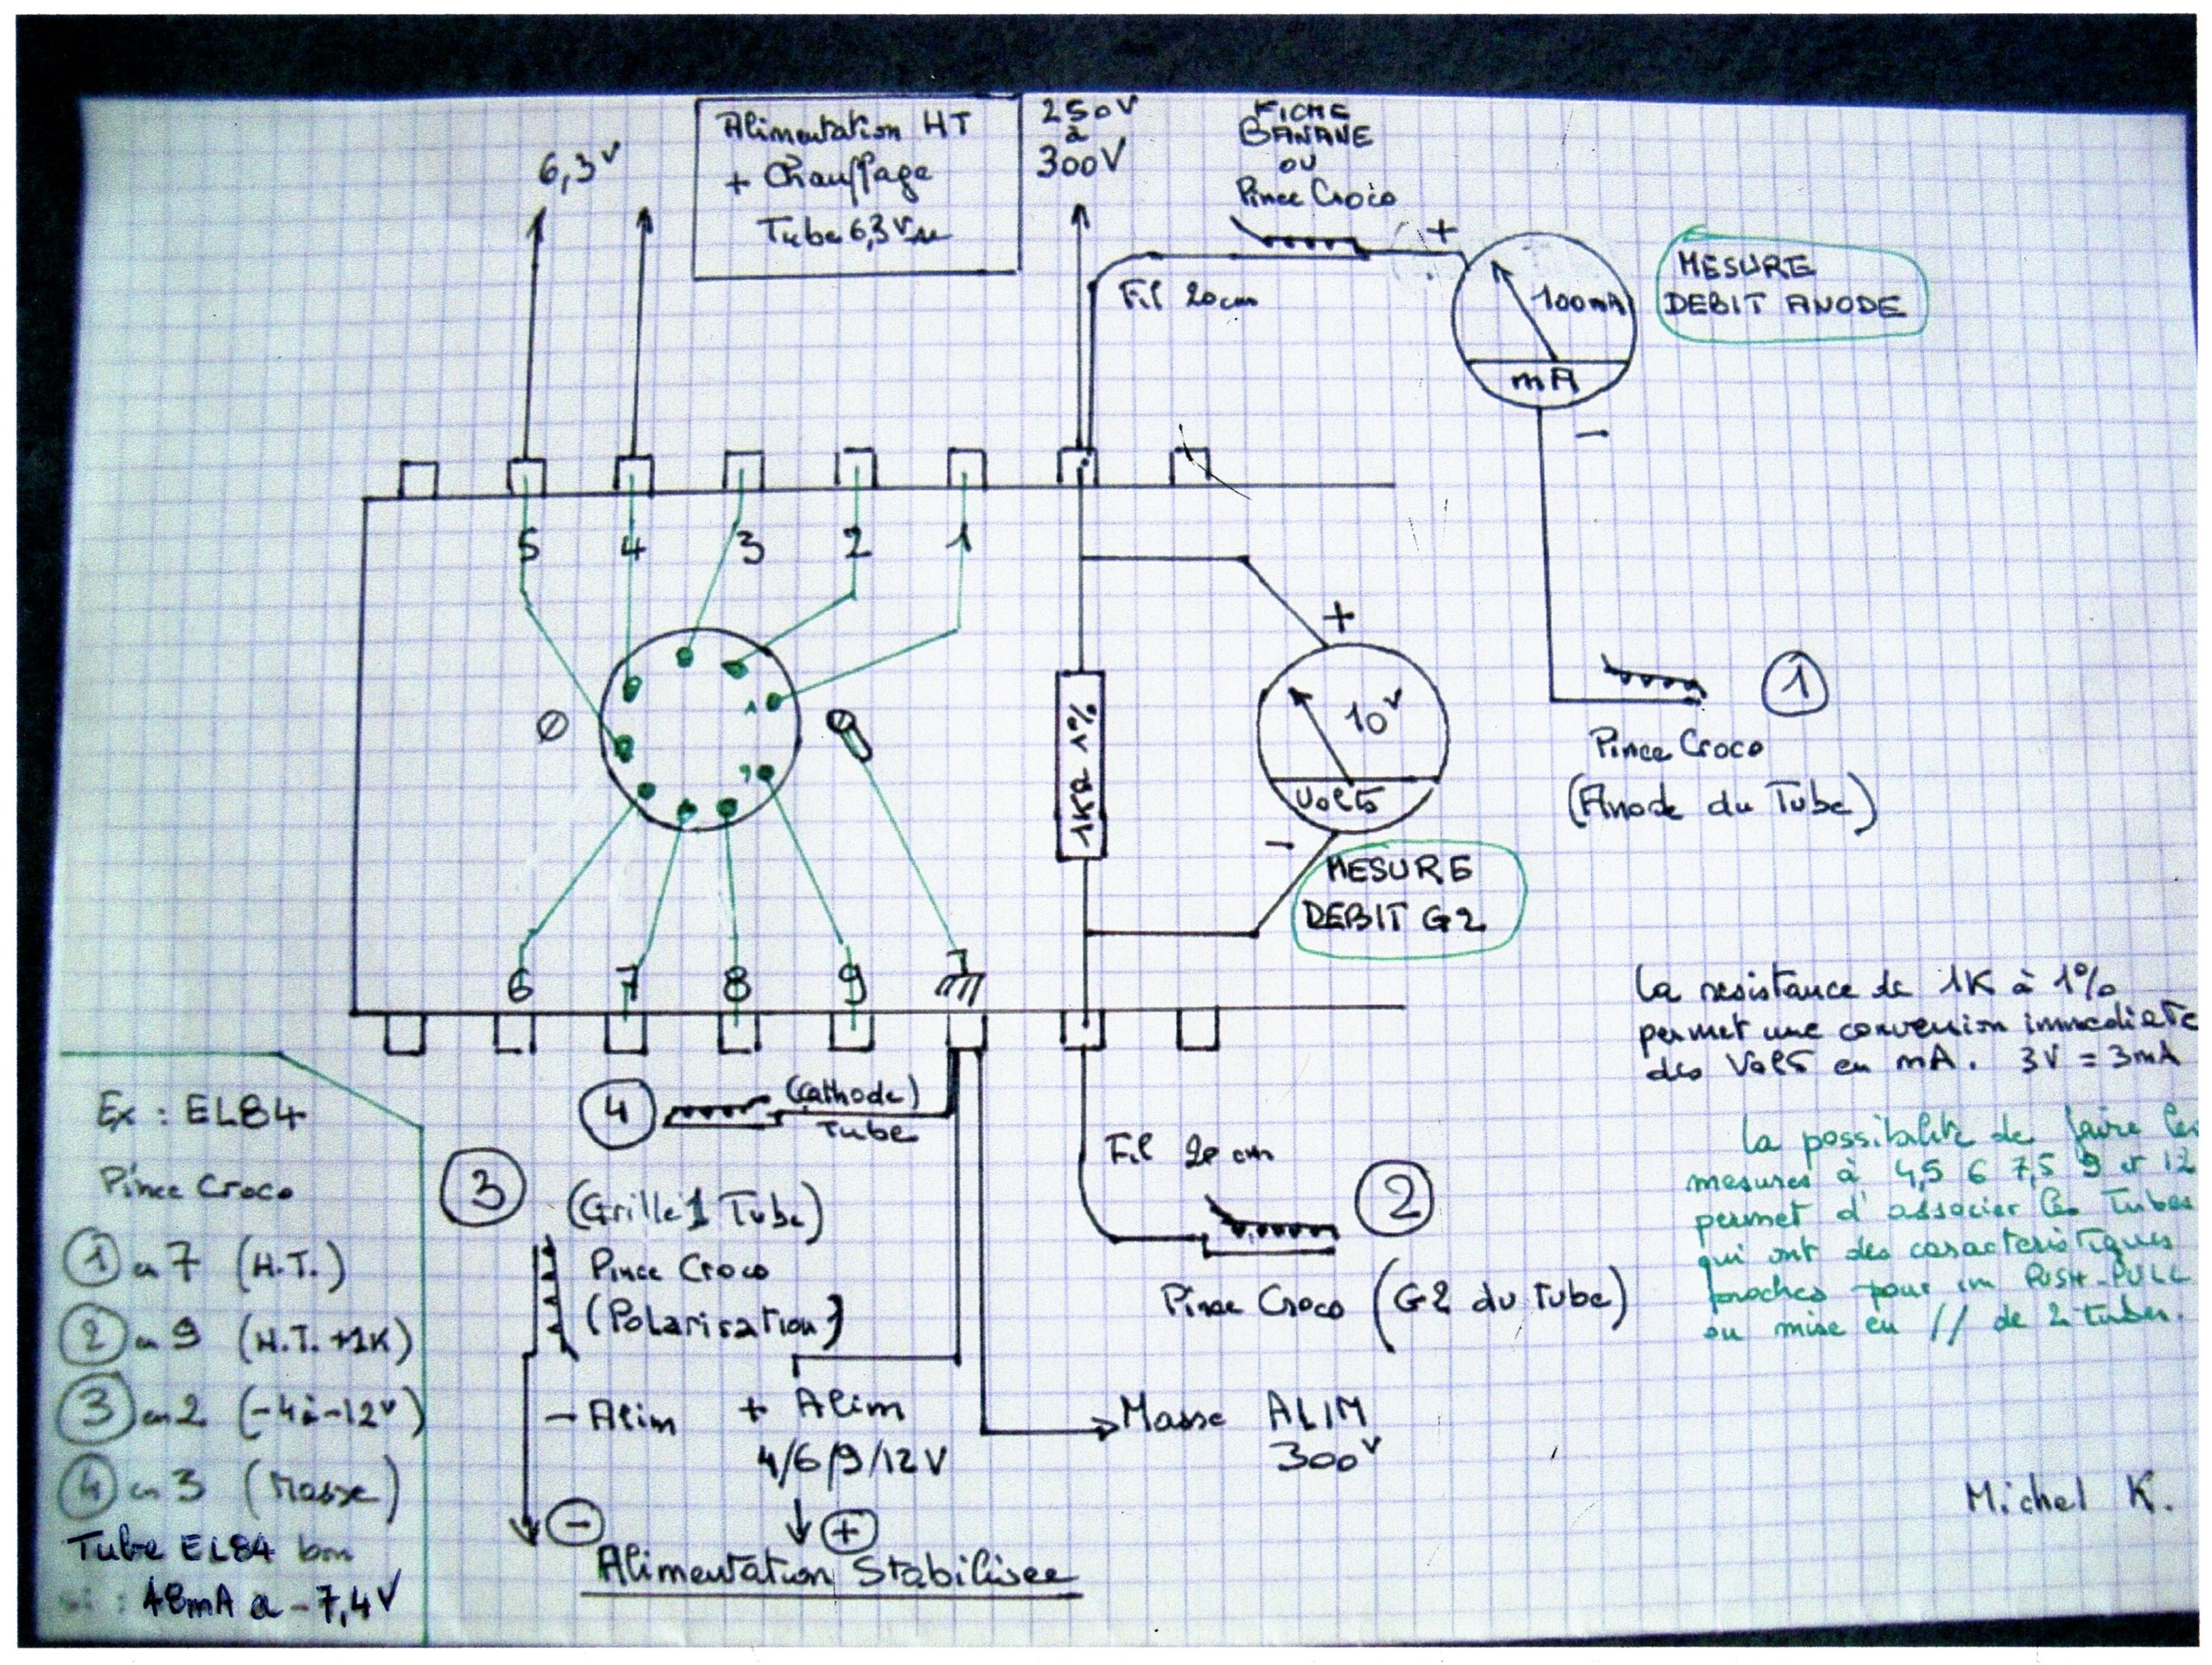 6,3V
Alimentation HT
+ Chauffage
Tube 6,3V
250V
à
300V
FICHE
BANANE
ou
Pince Croco
+
Fil 20cm
100mA
mA
-
MESURE
DEBIT ANODE
5 4 3 2 1
+
10V
Volts
-
1KΩ 1%
1
Pince Croco
(Anode du Tube)
MESURE
DEBIT G2
6 7 8 9
La resistance de 1K à 1%
permet une conversion immediate
des Volts en mA. 3V = 3mA
La possibilité de faire les
mesures à 4,5 6 7,5 9 et 12
permet d'associer les Tubes
qui ont des caracteristiques
proches pour un PUSH-PULL
ou mise en // de 2 tubes.
Michel K.
4 (Cathode)
Tube
3 (Grille 1 Tube)
Pince Croco
(Polarisation)
Fil 20 cm
2
Pince Croco (G2 du Tube)
- Alim + Alim
4/6/9/12V
Masse ALIM
300V
- +
Alimentation Stabilisee
Ex : EL84
Pince Croco
1 en 7 (H.T.)
2 en 9 (H.T. +1K)
3 en 2 (-4 à -12V)
4 en 3 (Masse)
Tube EL84 bon
si : 48mA a -7,4V